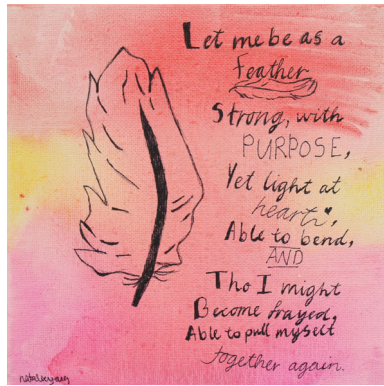 Let me be as a
Feather
Strong, with
PURPOSE,
Yet light at
heart,
Able to bend,
AND
Tho I might
Become frayed,
Able to pull myself
together again.